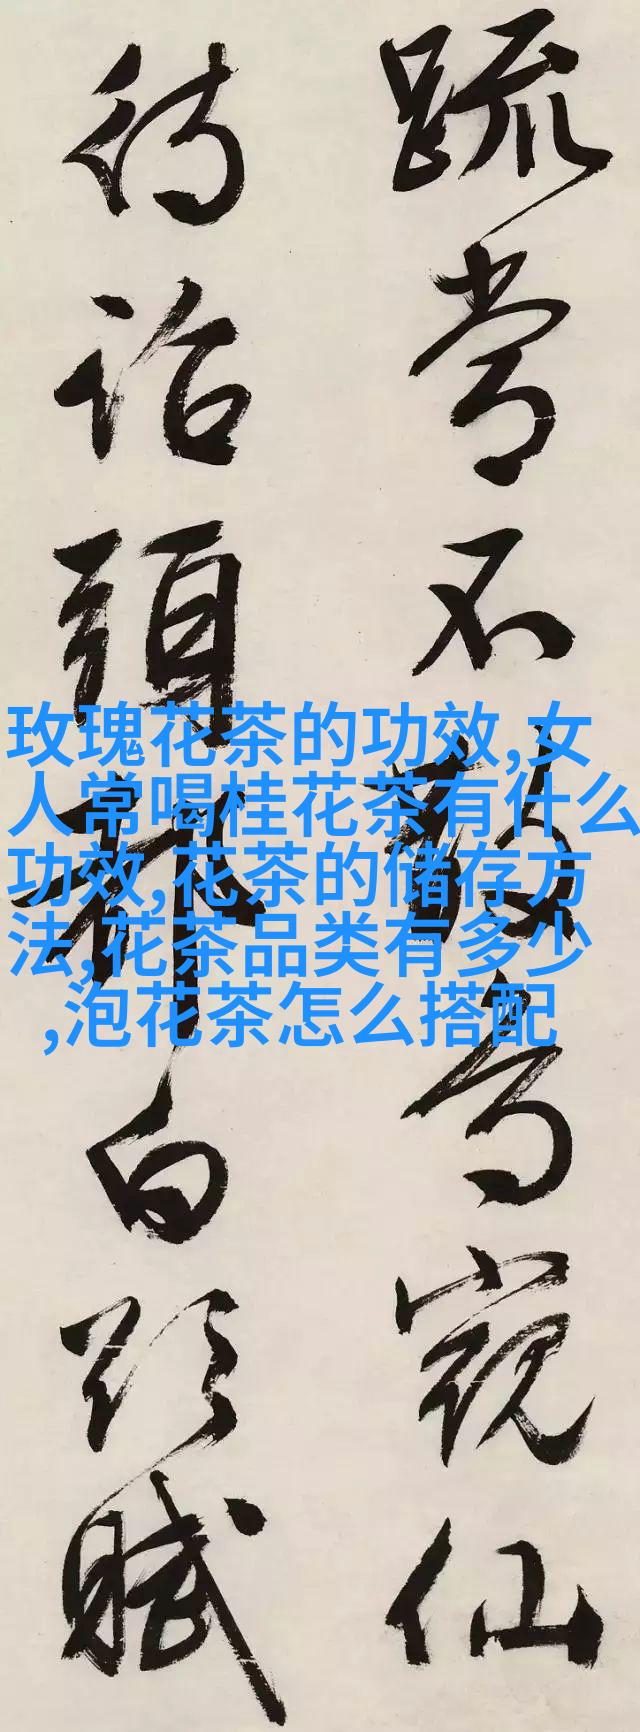 疏常不
仙
待詔頭
白
賦
玫瑰花茶的功效,女
人常喝桂花茶有什么
功效,花茶的储存方
法,花茶品类有多少
,泡花茶怎么搭配